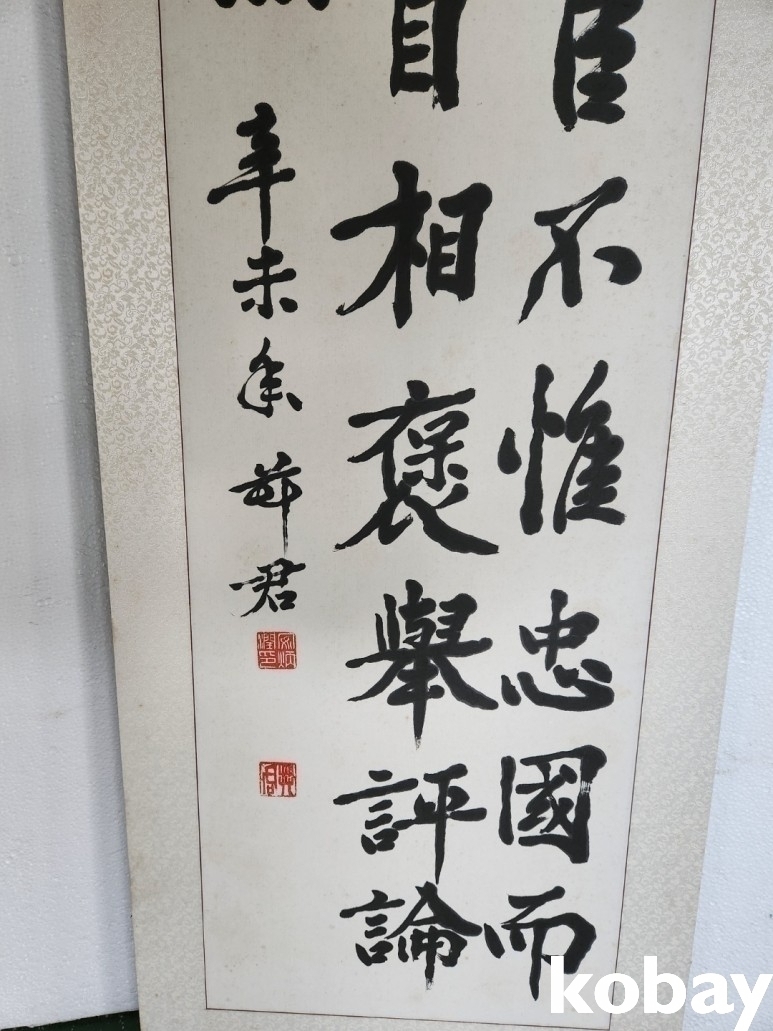 臣不惟忠國而
相褒舉評論
辛未 君
kobay